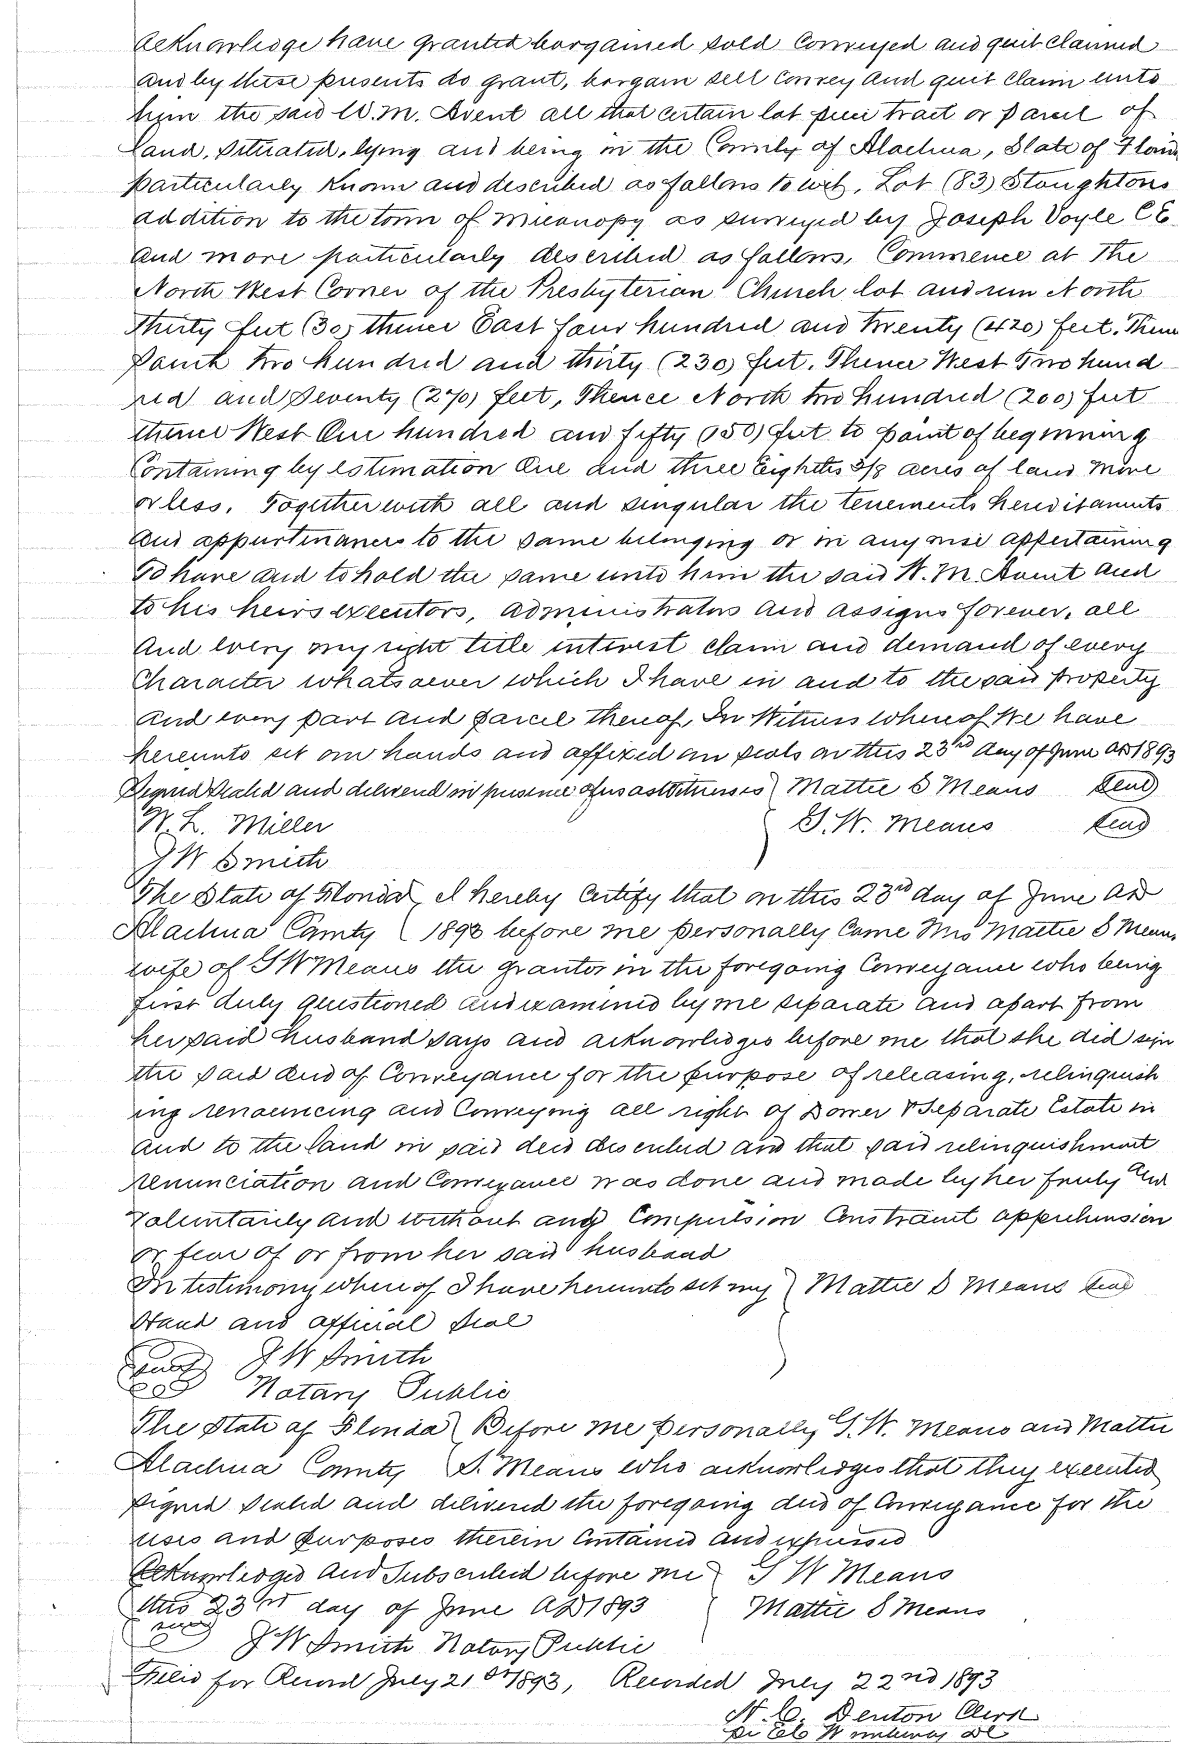 acknowledge have granted bargained sold conveyed and quit claimed
and by these presents do grant, bargain sell convey and quit claim unto
him the said W. M. Avent all that certain lot piece tract or parcel of
land, situated, lying and being in the County of Alachua, State of Florid
particularly known and described as follows to wit, Lot (83) Stoughtons
addition to the town of Micanopy as surveyed by Joseph Voyle C E
and more particularly described as follows, Commence at the
North West Corner of the Presbyterian Church lot and run North
thirty feet (30) thence East four hundred and twenty (420) feet. Thence
South two hundred and thirty (230) feet. Thence West Two hund
red and seventy (270) feet, Thence North two hundred (200) feet
thence West One hundred and fifty (150) feet to point of beginning
Containing by estimation One and three Eighths 3/8 acres of land more
or less. Together with all and singular the tenements hereditaments
and appurtenances to the same belonging or in any wise appertaining
To have and to hold the same unto him the said W. M. Avent and
to his heirs executors, administrators and assigns forever, all
and every my right title interest claim and demand of every
Character whatsoever which I have in and to the said property
and every part and parcel thereof, In Witness whereof We have
hereunto set our hands and affixed our seals on this 23rd day of June AD 1893
Signed Sealed and delivered in presence of us as Witnesses } Mattie S Means Seal
W. L. Miller G. W. Means Seal
J W Smith
The State of Florida } I hereby Certify that on this 23rd day of June AD
Alachua County 1893 before me personally Came Mrs Mattie S Means
wife of G W Means the grantor in the foregoing Conveyance who being
first duly questioned and examined by me separate and apart from
her said husband says and acknowledges before me that she did sign
the said deed of Conveyance for the purpose of releasing, relinquish
ing renouncing and Conveying all right of Dower & Separate Estate in
and to the land in said deed described and that said relinquishment
renunciation and Conveyance was done and made by her freely and
voluntarily and without any Compulsion Constraint apprehension
or fear of or from her said husband
In testimony whereof I have hereunto set my } Mattie S Means Seal
Hand and official Seal
J W Smith
Notary Public
The State of Florida } Before me personally G. W. Means and Mattie
Alachua County S. Means who acknowledges that they executed
signed sealed and delivered the foregoing deed of Conveyance for the
uses and purposes therein Contained and expressed
Acknowledged and Subscribed before me } G W Means
this 23rd day of June AD 1893 Mattie S Means
J W Smith Notary Public
Filed for Record July 21st 1893, Recorded July 22nd 1893
Denton Clerk